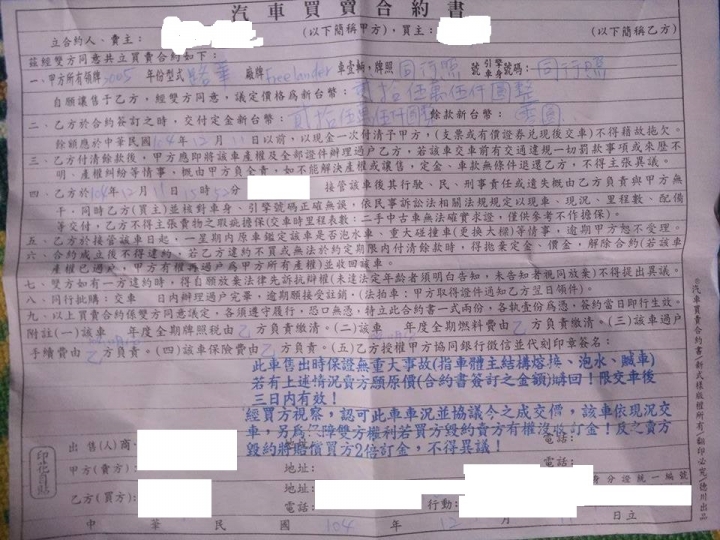 汽車買賣合約書
立合約人、賣主： (以下簡稱甲方)，買主： (以下簡稱乙方)
茲經雙方同意共立買賣合約如下：
一、甲方所有領牌2005年份型式 廠牌Freelander車壹輛，牌照同行照號引擎車身號碼：同行照
自願讓售于乙方，經雙方同意，議定價格為新台幣：貳拾伍萬伍仟圓整
二、乙方於合約簽訂之時，交付定金新台幣：貳拾伍萬伍仟圓整 餘款新台幣：零圓
餘額應於中華民國104年12月11日以前，以現金一次付清子甲方，(支票或有價證券兌現後交車)不得藉故拖欠。
三、乙方付清餘款後，甲方應即將該車產權及全部證件辦理過戶乙方，若該車交車前有交通違規一切罰款事項或來歷不
明，產權糾紛等情事，概由甲方負全責，如不能解決產權或讓售，定金、車款無條件退還乙方，不得主張異議。
四、乙方於104年12月11日15時52分 接管該車後其行駛、民、刑事責任或遺失概由乙方負責與甲方無
干，同時乙方(買主)並核對車身、引擎號碼正確無誤，依民事訴訟法相關法規規定以現車、現況、里程數、配備
等交付，乙方不得主張貴物之瑕疵擔保(交車時里程表數：二手中古車無法確實求證，僅供參考不作擔保)。
五、乙方於接管該車日起，一星期內原車鑑定該車是否泡水車、重大碰撞車(更換大樑)等情事，逾期甲方恕不受理。
六、合約成立後不得違約，若乙方違約不買或無法於約定期限內付清餘款時，得拋棄定金、價金，解除合約(若該車
產權已過戶，甲方有權再過戶為甲方所有產權)並收回該車。
七、雙方如有一方違約時，得自願放棄法律先訴抗辯權(未達法定年齡者須明白告知，未告知者視同放棄)不得提出異議。
八、同行批購：交車 日內辦理過戶完畢，逾期願接受註銷，(法拍車：甲方取得證件通知乙方翌日領件)。
九、以上買賣合約係雙方同意議定，各須遵守履行，恐口無憑，特立此合約書一式兩份，各執壹份為憑，簽約當日即行生效。
附註(一)該車 年度全期牌照稅由乙方負責繳清。(二)該車 年度全期燃料費由乙方負責繳清。(三)該車過戶
手續費由乙方負責。(四)該車保險費由乙方負責。(五)乙方授權甲方協同銀行徵信並代刻印章簽名：
此車售出時保證無重大事故(指車體主結構熔換、泡水、贓車)
若有上述情況賣方願原價(合約書簽訂之金額)購回！限交車後
三日內有效！
經買方視察，認可此車車況並協議今之成交價，該車依現況交
車，另為保障雙方權利若買方毀約賣方有權沒收訂金！反之賣方
毀約將賠償買方2倍訂金，不得異議！
出售(人)商： 電話：
甲方(賣方)： 地址： 電話：
乙方(買方)： 地址： 身分證統一編號
電話： 行動：
印花自貼
中華民國104年12月11日立
※汽車買賣合約書(新式樣版權所有、翻印必究)德川出品